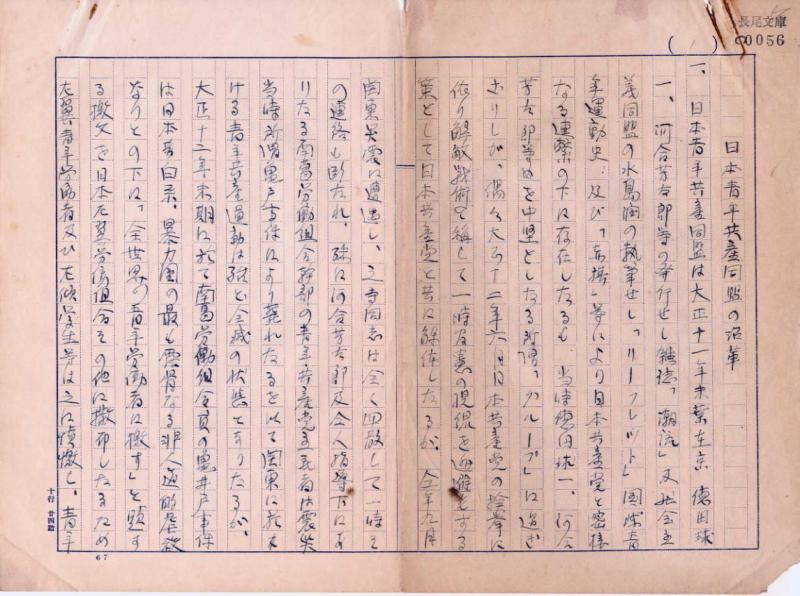 長尾文庫
C0056
(1)
日本青年共産同盟の沿革
一、日本青年共産同盟は大正十一年末葉在京 徳田球
一、河合芳太郎等の発行せし雑誌「潮流」及社会主
義同盟の の執筆せし「リーフレット」国際青
年運動史、及び「赤旗」等により日本共産党と密接
なる連繋の下に存在したるも、当時徳田球一、河合
芳太郎等を中堅としたる所謂「グループ」に過ぎ
ざりしが、偶々大正十二年六月日本共産党の検挙に
依り解散戦術と称して一時友喪の視線を避けむする
策として日本共産党と共に解体したるが、仝年九月
関東大震に遭遇し、之等同志は全く四散して一時其
の連絡も断たれ、殊に河合芳太郎及仝人指導下にあ
りたる南葛労働組合幹部の青年共産党主義者は震災
当時所謂亀戸事件により斃れたるを以て関東に於
ける青年共産運動は殆と全滅の状態となりたるが、
大正十二年末期に於て南葛労働組合員の亀井戸事件
は日本 白系、暴力団の最も露骨なる非人道的虐殺
なりとの下に「全世界の青年労働者に檄す」と題す
る檄文を日本左翼労働組合その他に撒布したるため
左翼青年労働者及び左傾学生等は之に憤慨し、青年
十行 廿四詰
67